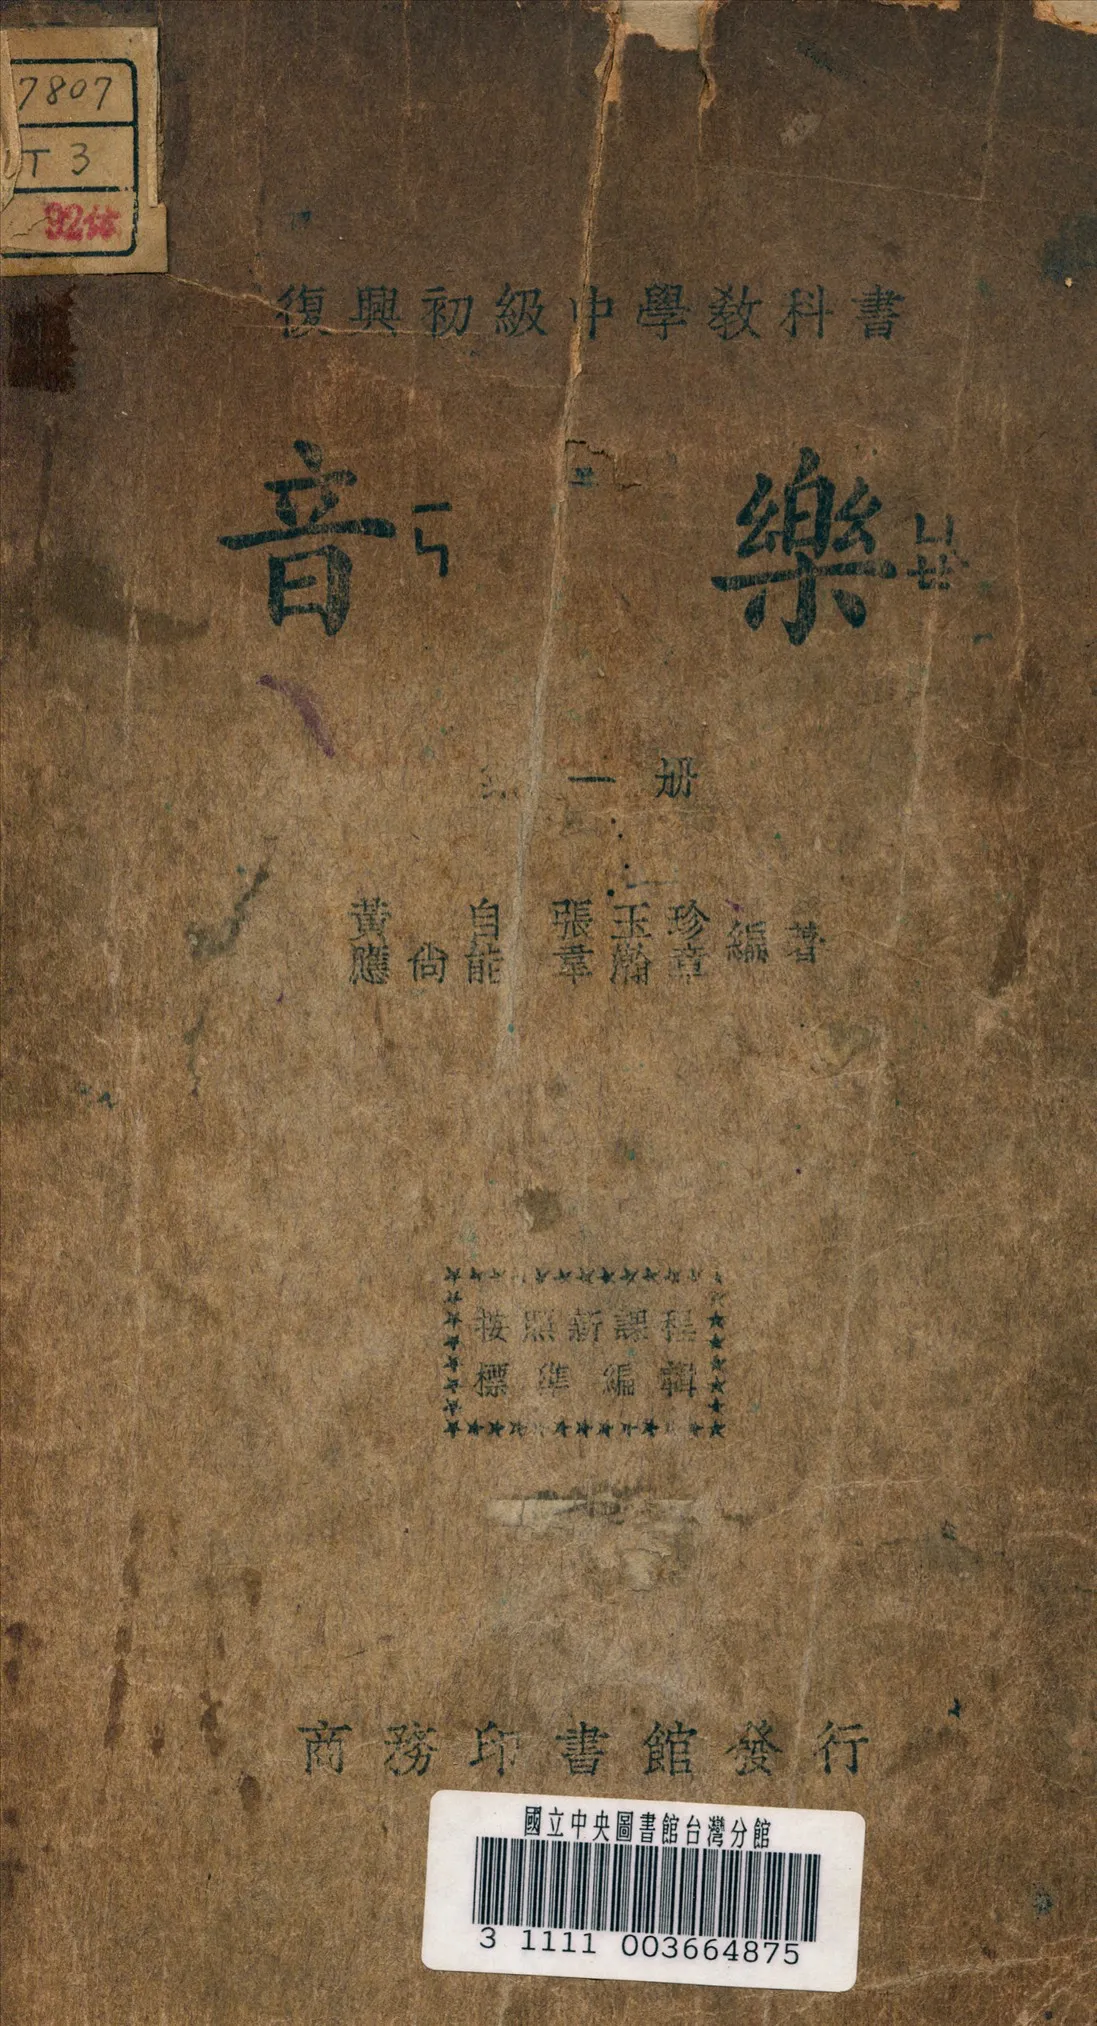 7807
T 3
92
復興初級中學敎科書
音樂
一册
黃自 張玉珍
應尙能 韋瀚章 編著
按照新課程
標準編輯
商務印書館發行
國立中央圖書館台灣分館
3 1111 003664875